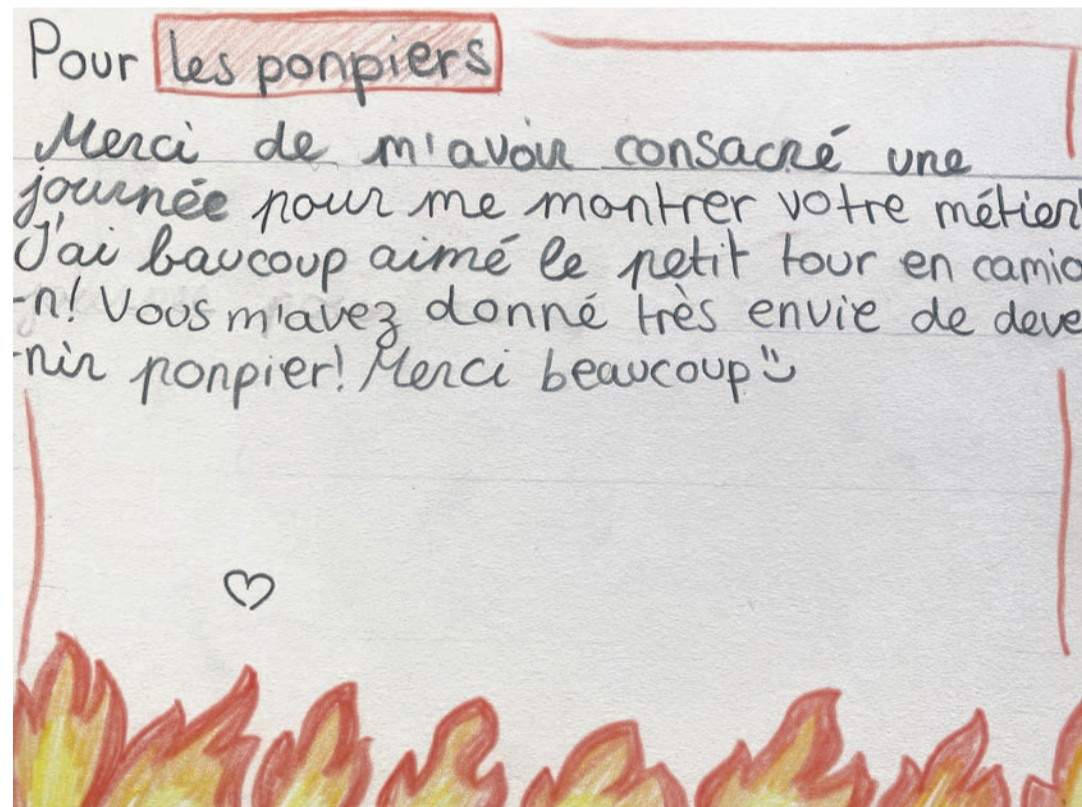 Pour les ponpiers
Merci de m'avoir consacré une
journée pour me montrer votre métier
J'ai baucoup aimé le petit tour en camio
-n! Vous m'avez donné très envie de deve
-nir ponpier! Merci beaucoup